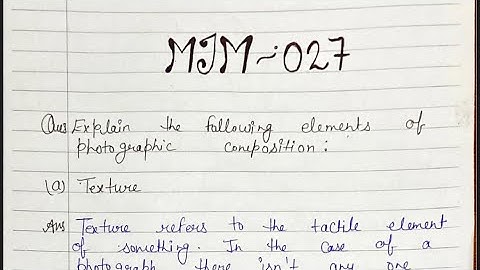 MJM-027
Ques Explain the following elements of
photographic composition:
(a) Texture
Ans Texture refers to the tactile element
of something. In the case of a
photograph, there isn't any one